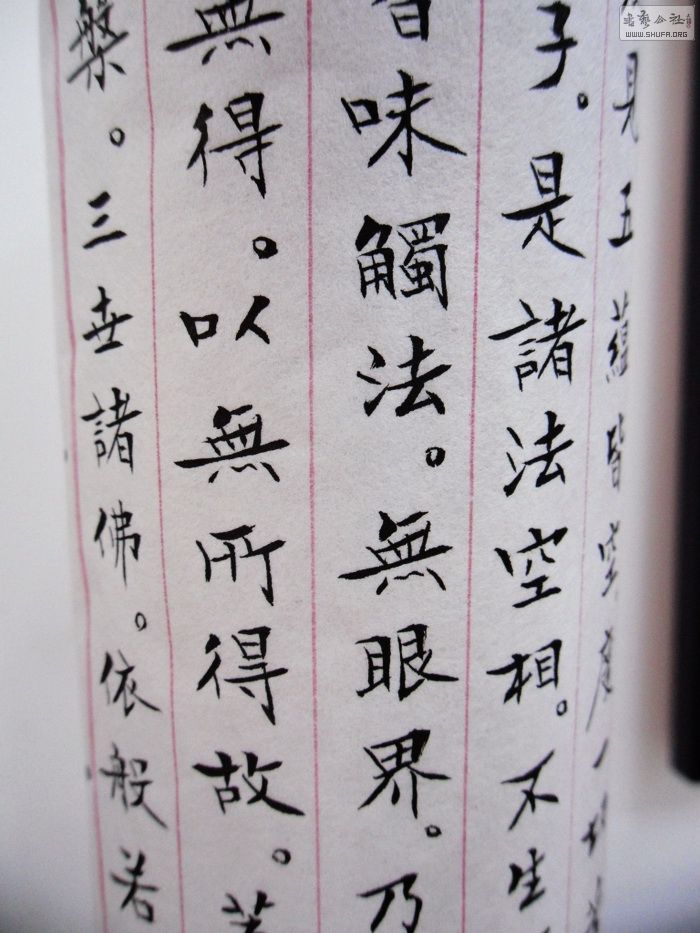 見五蘊皆空度一切
子。是諸法空相。不生
味觸法。無眼界。乃
無得。以無所得故。菩
槃。三世諸佛。依般若
書艺公社
WWW.SHUFA.ORG